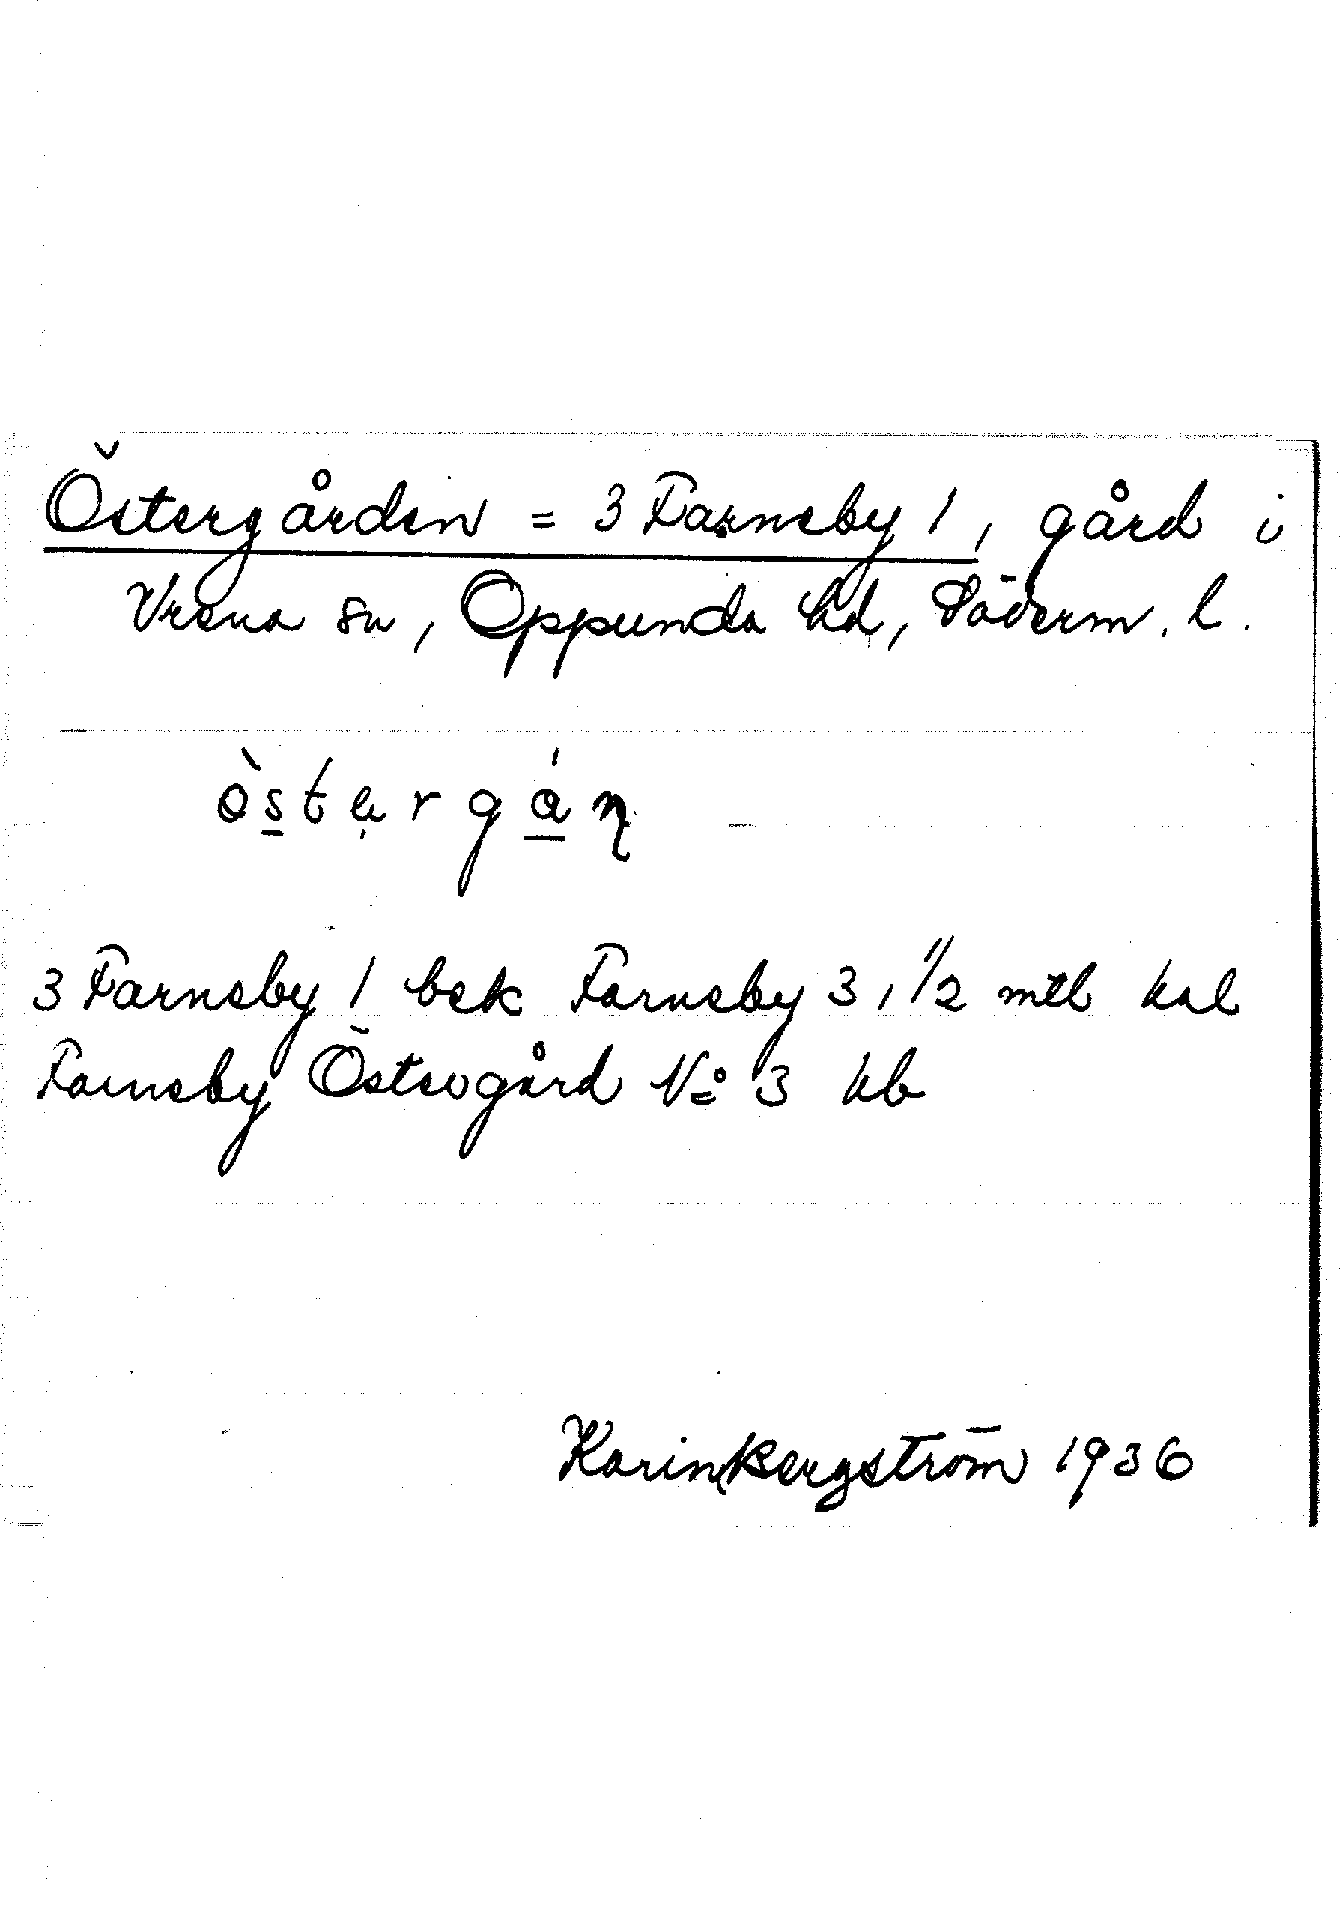 Östergården = 3 Farneby 1, gård i
Vrena sn, Oppunda hd, Söderm. l.
östərgån
3 Farneby 1 bek Farneby 3, 1/2 mtl
Farneby Östergård No 3 kb
Karin Bergström 1936